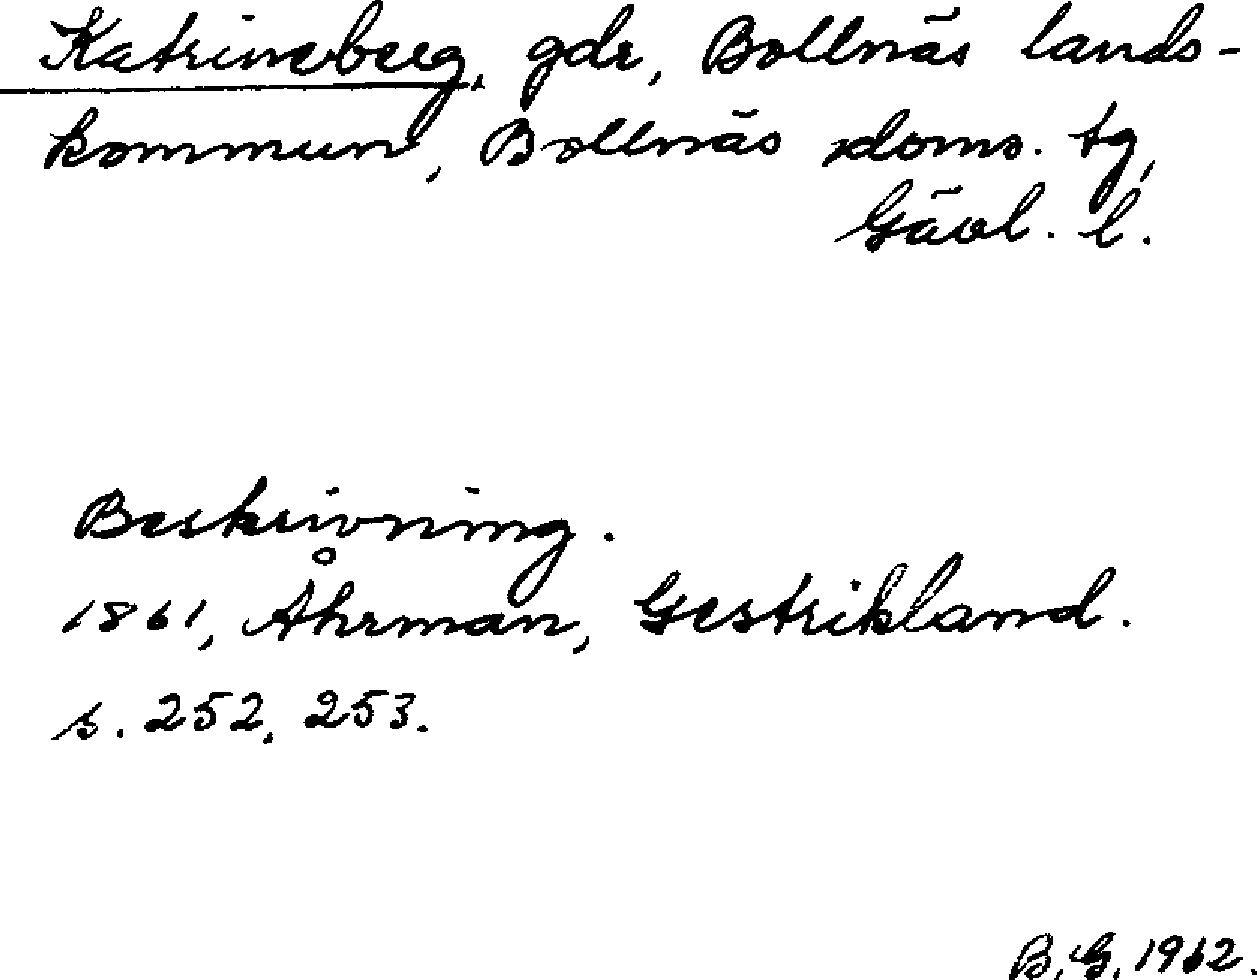 Katrineberg, gdr, Bollnäs lands-
kommun, Bollnäs doms. tg,
Gävl. l.
Beskrivning.
1861, Åhrman, Gestrikland.
s. 252, 253.
B. G. 1962.